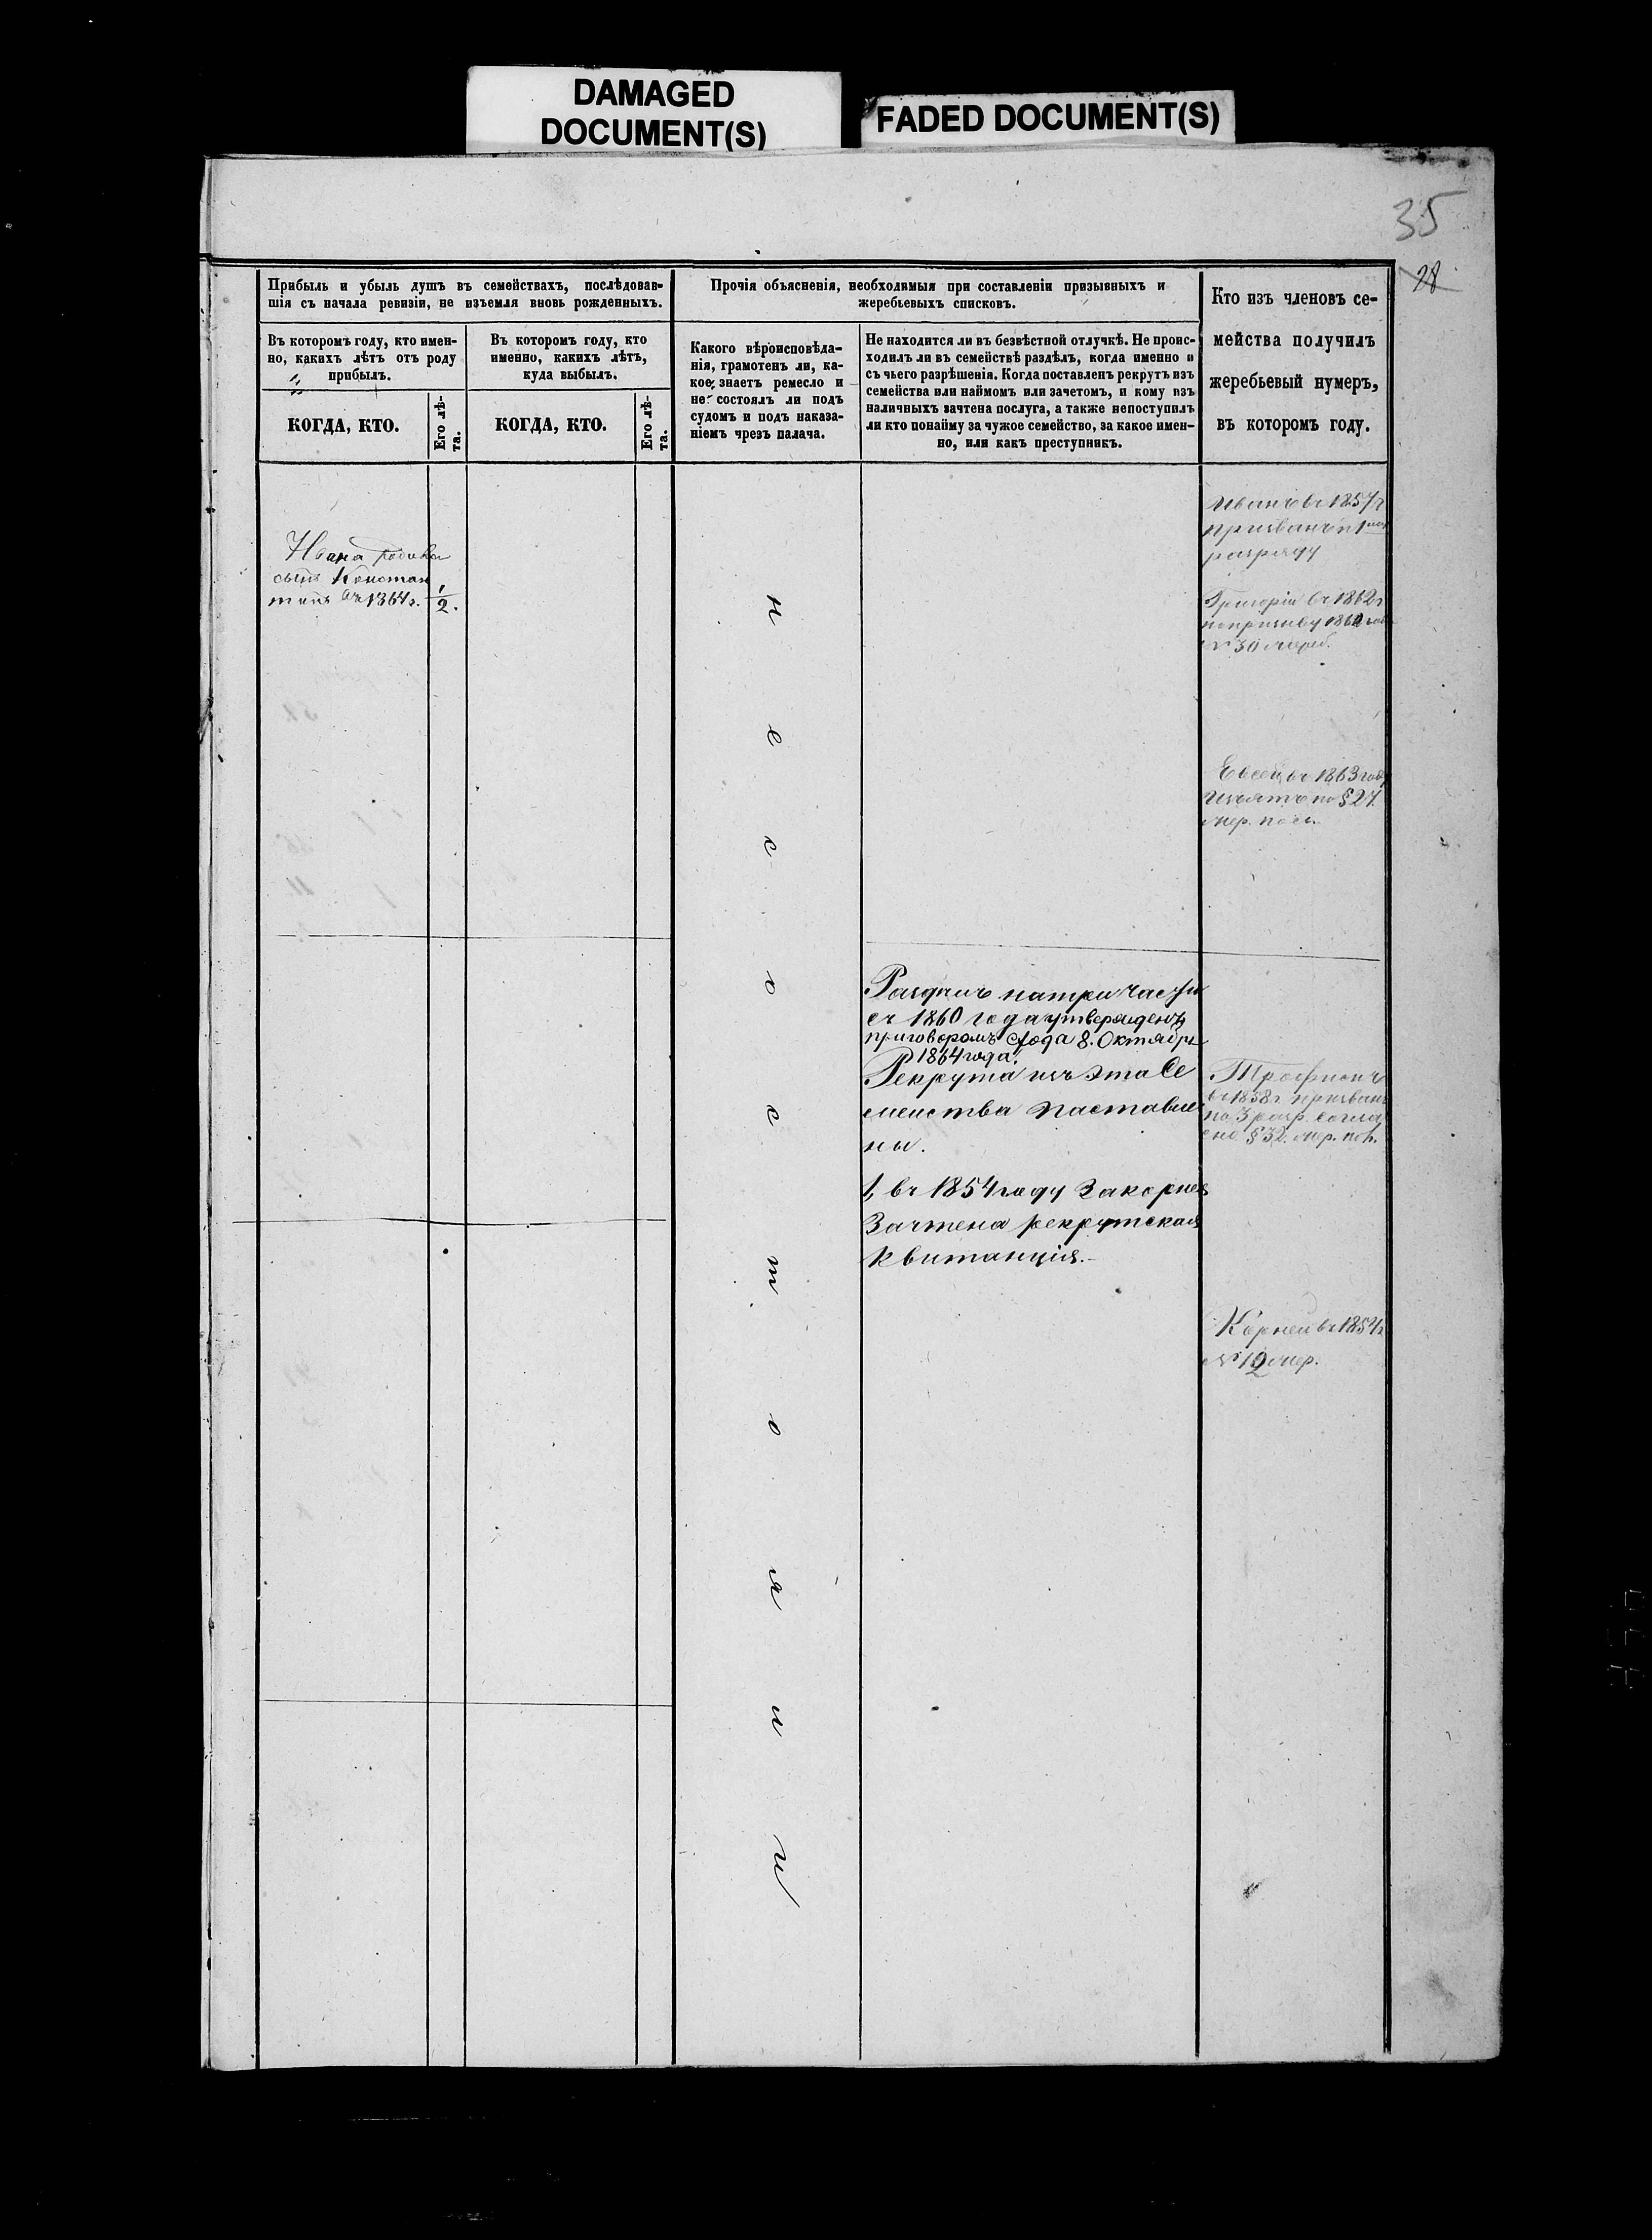 DAMAGED
DOCUMENT(S)
FADED DOCUMENT(S)
35
28
Прибыль и убыль душъ въ семействахъ, послѣдовав-
шія съ начала ревизіи, не изъемля вновь рожденныхъ.
Прочія объясненія, необходимыя при составленіи призывныхъ и
жеребьевыхъ списковъ.
Кто изъ членовъ се-
мейства получилъ
жеребьевый нумеръ,
въ которомъ году.
Въ которомъ году, кто имен-
но, какихъ лѣтъ отъ роду
прибылъ.
Въ которомъ году, кто
именно, какихъ лѣтъ,
куда выбылъ.
Какого вѣроисповѣда-
нія, грамотенъ ли, ка-
кое знаетъ ремесло и
не состоялъ ли подъ
судомъ и подъ наказа-
ніемъ чрезъ палача.
Не находится ли въ безвѣстной отлучкѣ. Не проис-
ходилъ ли въ семействѣ раздѣлъ, когда именно и
съ чьего разрѣшенія. Когда поставленъ рекрутъ изъ
семейства или наймомъ или зачетомъ, и кому изъ
наличныхъ зачтена послуга, а также непоступилъ
ли кто понайму за чужое семейство, за какое имен-
но, или какъ преступникъ.
КОГДА, КТО.
Его лѣ-
та.
КОГДА, КТО.
Его лѣ-
та.
Ивана родился
сынъ Констан
тинъ въ 1864 г. 1/2.
не состояли
Раздѣлъ на три части
съ 1860 года утвержденъ
приговоромъ схода 8. Октября
1864 года.
Рекрута изъ этаго се
мейства поставле
ны.
1, въ 1854 году За корнея
Зачтена рекрутская
квитанція.
Иванъ въ 1857 г
призванъ по 1му
разряду
Григорій въ 1862 г
по призыву
№ 30 жереб.
Евсей въ 1863 году
Изъятъ по § 27.
жер. пол.
Трофимъ
въ 1858 г призванъ
по 3 разр. согла
сно § 32. жер. пол.
Корней въ 1854 г
№ 12 жер.